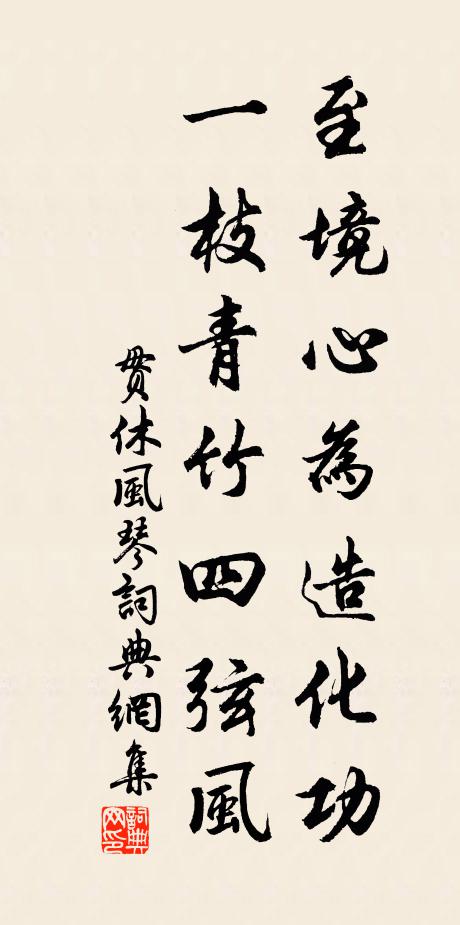 至境心為造化功
一枝青竹四弦風
貫休風琴詞典網集
詞典網印